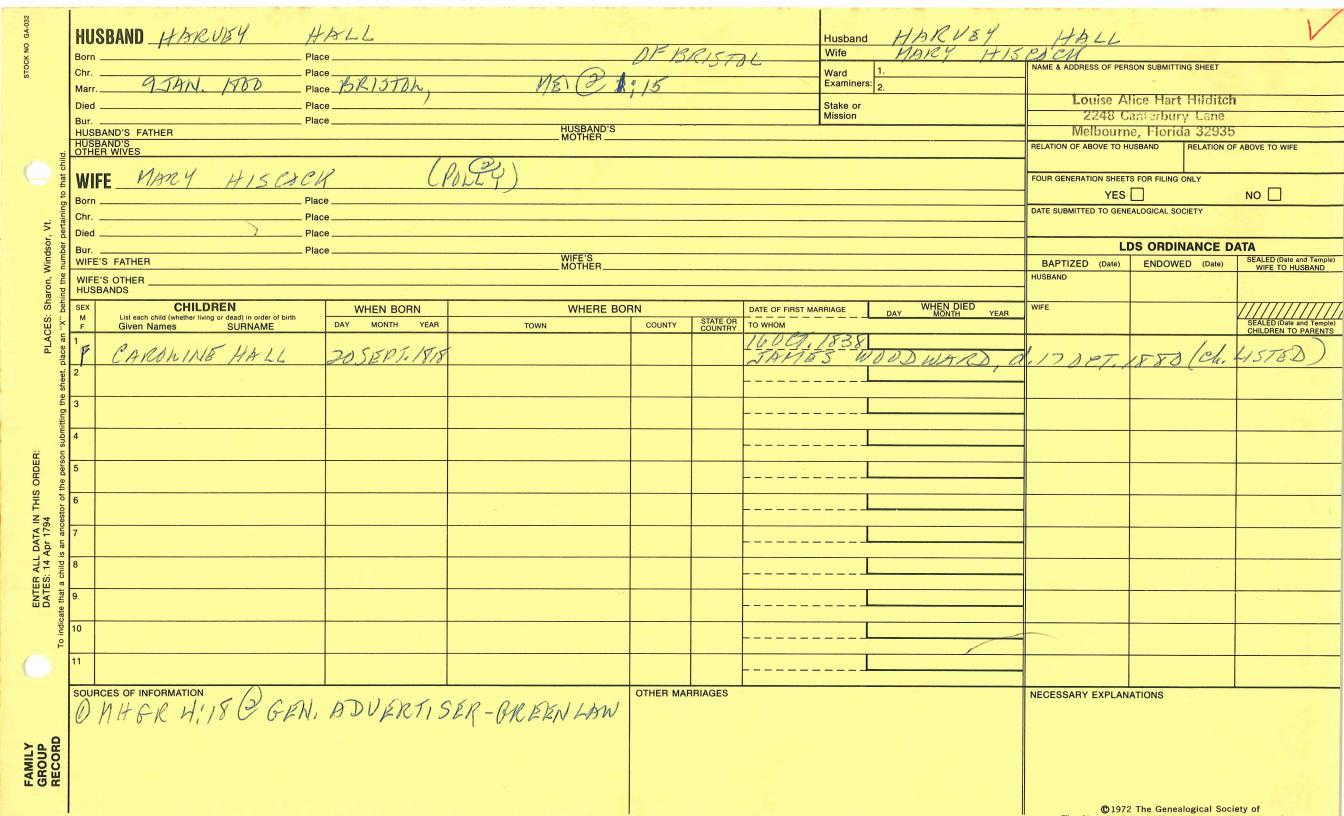 STOCK NO. GA-032
PLACES: Sharon, Windsor, Vt.
ENTER ALL DATA IN THIS ORDER:
DATES: 14 Apr 1794
To indicate that a child is an ancestor of the person submitting the sheet, place an "X" behind the number pertaining to that child.
FAMILY GROUP RECORD
HUSBAND HARVEY HALL
Born Place OF BRISTOL
Chr. Place
Marr. 9 JAN. 1800 Place BRISTOL, ME. ② 1:15
Died Place
Bur. Place
HUSBAND'S FATHER HUSBAND'S MOTHER
HUSBAND'S OTHER WIVES
WIFE MARY HISCOCK (POLLY) ②
Born Place
Chr. Place
Died Place
Bur. Place
WIFE'S FATHER WIFE'S MOTHER
WIFE'S OTHER HUSBANDS
Husband HARVEY HALL
Wife MARY HISCOCK
Ward Examiners: 1.
2.
Stake or Mission
NAME & ADDRESS OF PERSON SUBMITTING SHEET
Louise Alice Hart Hilditch
2248 Canterbury Lane
Melbourne, Florida 32935
RELATION OF ABOVE TO HUSBAND RELATION OF ABOVE TO WIFE
FOUR GENERATION SHEETS FOR FILING ONLY
YES NO
DATE SUBMITTED TO GENEALOGICAL SOCIETY
LDS ORDINANCE DATA
BAPTIZED (Date) ENDOWED (Date) SEALED (Date and Temple) WIFE TO HUSBAND
HUSBAND
WIFE
SEALED (Date and Temple) CHILDREN TO PARENTS
SEX M F CHILDREN WHEN BORN WHERE BORN DATE OF FIRST MARRIAGE WHEN DIED
List each child (whether living or dead) in order of birth
Given Names SURNAME DAY MONTH YEAR TOWN COUNTY STATE OR COUNTRY TO WHOM DAY MONTH YEAR
16 OCT. 1838
1 F CAROLINE HALL 20 SEPT. 1818 JAMES WOODWARD, d. 17 OCT. 1880 (Ch. LISTED)
2
3
4
5
6
7
8
9.
10
11
SOURCES OF INFORMATION OTHER MARRIAGES NECESSARY EXPLANATIONS
① MHGR 4:18 ② GEN. ADVERTISER-GREENLAW
©1972 The Genealogical Society of